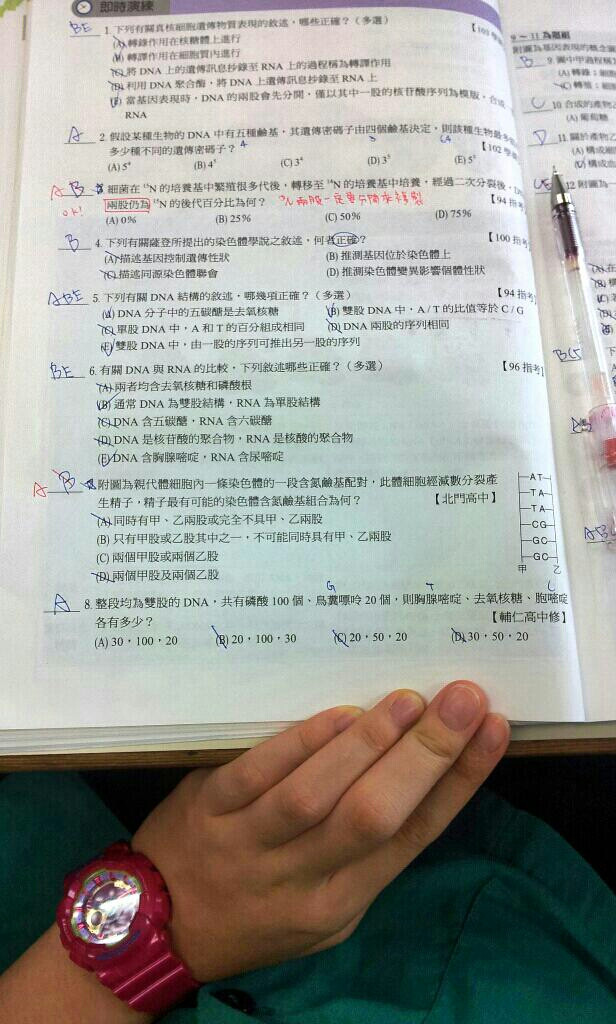 即時演練
BE 1. 下列有關真核細胞遺傳物質表現的敘述,哪些正確?(多選)
(A)轉錄作用在核糖體上進行
(B)轉譯作用在細胞質內進行
(C)將 DNA 上的遺傳訊息抄錄至 RNA 上的過程稱為轉譯作用
(D)利用 DNA 聚合酶,將 DNA 上遺傳訊息抄錄至 RNA 上
(E)當基因表現時,DNA 的兩股會先分開,僅以其中一股的核苷酸序列為模版,合成
RNA
A 2. 假設某種生物的 DNA 中有五種鹼基,其遺傳密碼子由四個鹼基決定,則該種生物最多
多少種不同的遺傳密碼子?【102
(A) 5⁴ (B) 4⁵ (C) 3⁴ (D) 3⁵ (E) 5⁵
A B 3. 細菌在 ¹⁵N 的培養基中繁殖很多代後,轉移至 ¹⁴N 的培養基中培養,經過二次分裂後,
兩股仍為 ¹⁵N 的後代百分比為何?【94 指
(A) 0% (B) 25% (C) 50% (D) 75%
B 4. 下列有關薩登所提出的染色體學說之敘述,何者正確?【100 指
(A)描述基因控制遺傳性狀 (B)推測基因位於染色體上
(C)描述同源染色體聯會 (D)推測染色體變異影響個體性狀
ABE 5. 下列有關 DNA 結構的敘述,哪幾項正確?(多選)【94 指考】
(A) DNA 分子中的五碳醣是去氧核糖 (B)雙股 DNA 中,A / T 的比值等於 C / G
(C)單股 DNA 中,A 和 T 的百分組成相同 (D) DNA 兩股的序列相同
(E)雙股 DNA 中,由一股的序列可推出另一股的序列
BE 6. 有關 DNA 與 RNA 的比較,下列敘述哪些正確?(多選)【96 指考】
(A)兩者均含去氧核糖和磷酸根
(B)通常 DNA 為雙股結構,RNA 為單股結構
(C) DNA 含五碳醣,RNA 含六碳醣
(D) DNA 是核苷酸的聚合物,RNA 是核酸的聚合物
(E) DNA 含胸腺嘧啶,RNA 含尿嘧啶
A B 附圖為親代體細胞內一條染色體的一段含氮鹼基配對,此體細胞經減數分裂產
生精子,精子最有可能的染色體含氮鹼基組合為何?【北門高中】
(A)同時有甲、乙兩股或完全不具甲、乙兩股
(B)只有甲股或乙股其中之一,不可能同時具有甲、乙兩股
(C)兩個甲股或兩個乙股
(D)兩個甲股及兩個乙股
AT
TA
TA
CG
GC
GC
甲 乙
G T C
A 8. 整段均為雙股的 DNA,共有磷酸 100 個、鳥糞嘌呤 20 個,則胸腺嘧啶、去氧核糖、胞嘧啶
各有多少?【輔仁高中修】
(A) 30,100,20 (B) 20,100,30 (C) 20,50,20 (D) 30,50,20
9 ~ 11 為題組
附圖為基因表現的概念
B 9. 圖中甲過程
(A)轉錄;細
(C)轉譯;細
C 10 合成的產物
(A)葡萄糖
D 11. 關於產物
(A)構成細
12 附圖為